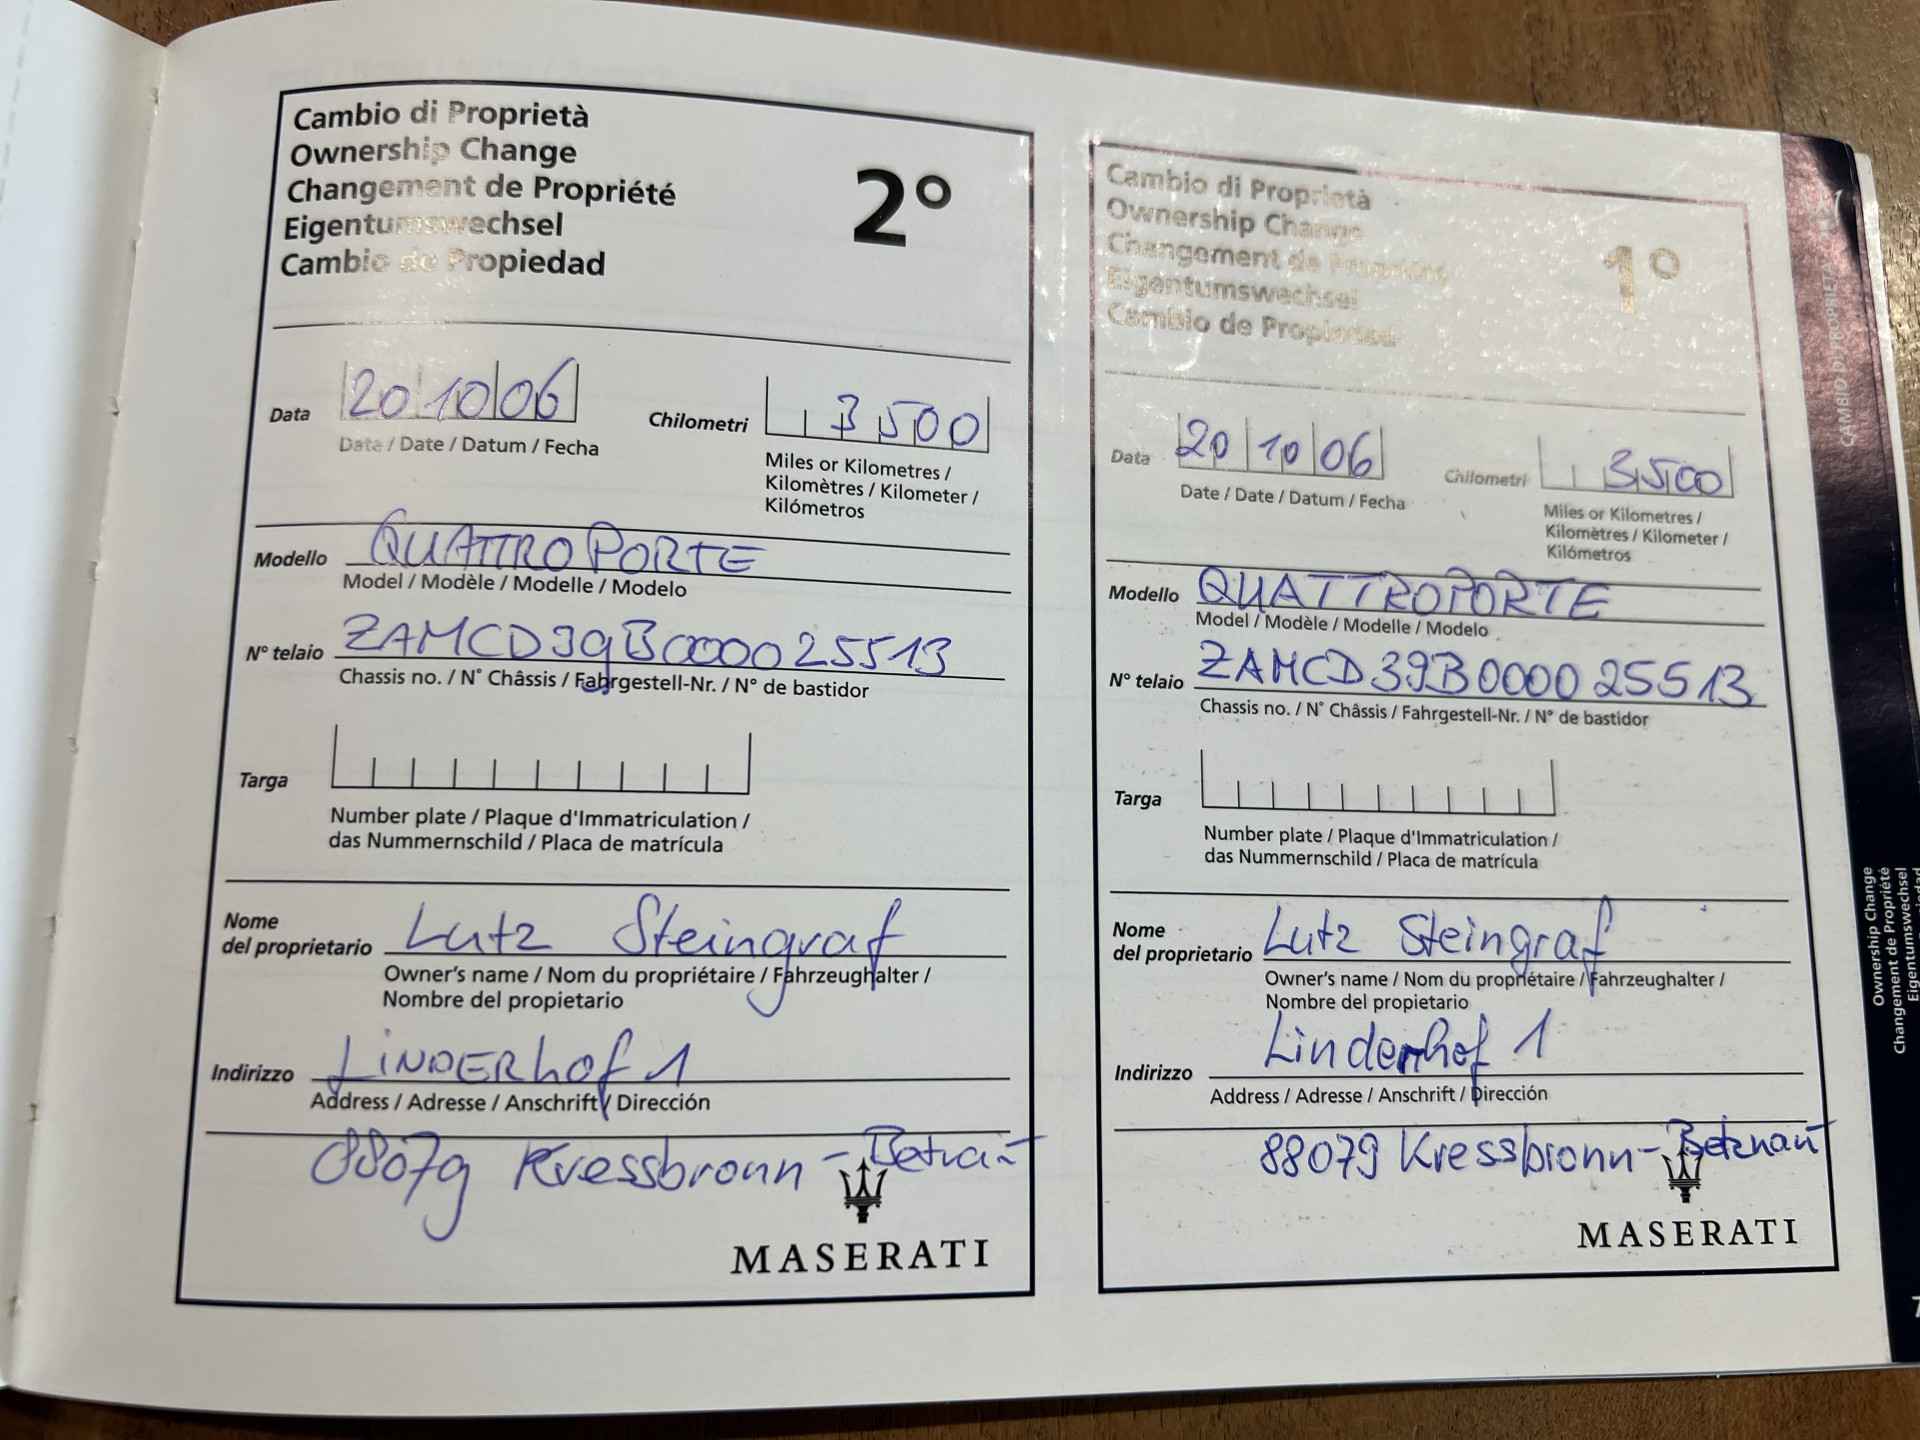 Cambio di Proprietà
Ownership Change
Changement de Propriété
Eigentumswechsel
Cambio de Propiedad
2°
Data 20 10 06
Date / Date / Datum / Fecha
Chilometri 3 500
Miles or Kilometres /
Kilomètres / Kilometer /
Kilómetros
Modello QUATTROPORTE
Model / Modèle / Modelle / Modelo
N° telaio ZAMCD39B000025513
Chassis no. / N° Châssis / Fahrgestell-Nr. / N° de bastidor
Targa
Number plate / Plaque d'Immatriculation /
das Nummernschild / Placa de matrícula
Nome
del proprietario Lutz Steingraf
Owner's name / Nom du propriétaire / Fahrzeughalter /
Nombre del propietario
Indirizzo LINDERhof 1
Address / Adresse / Anschrift / Dirección
88079 Kressbronn -
MASERATI
Cambio di Proprietà
Ownership Change
Changement de Propriété
Eigentumswechsel
Cambio de Propiedad
1°
Data 20 10 06
Date / Date / Datum / Fecha
Chilometri 3500
Miles or Kilometres /
Kilomètres / Kilometer /
Kilómetros
Modello QUATTROPORTE
Model / Modèle / Modelle / Modelo
N° telaio ZAMCD39B000025513
Chassis no. / N° Châssis / Fahrgestell-Nr. / N° de bastidor
Targa
Number plate / Plaque d'Immatriculation /
das Nummernschild / Placa de matrícula
Nome
del proprietario Lutz Steingraf
Owner's name / Nom du propriétaire / Fahrzeughalter /
Nombre del propietario
Indirizzo Linderhof 1
Address / Adresse / Anschrift / Dirección
88079 Kressbronn-
MASERATI
CAMBIO DI PROPRIETÀ
Ownership Change
Changement de Propriété
Eigentumswechsel